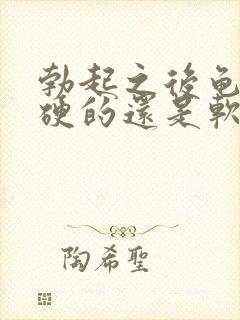 勃起之後龟
硬的還是軟
陶希聖